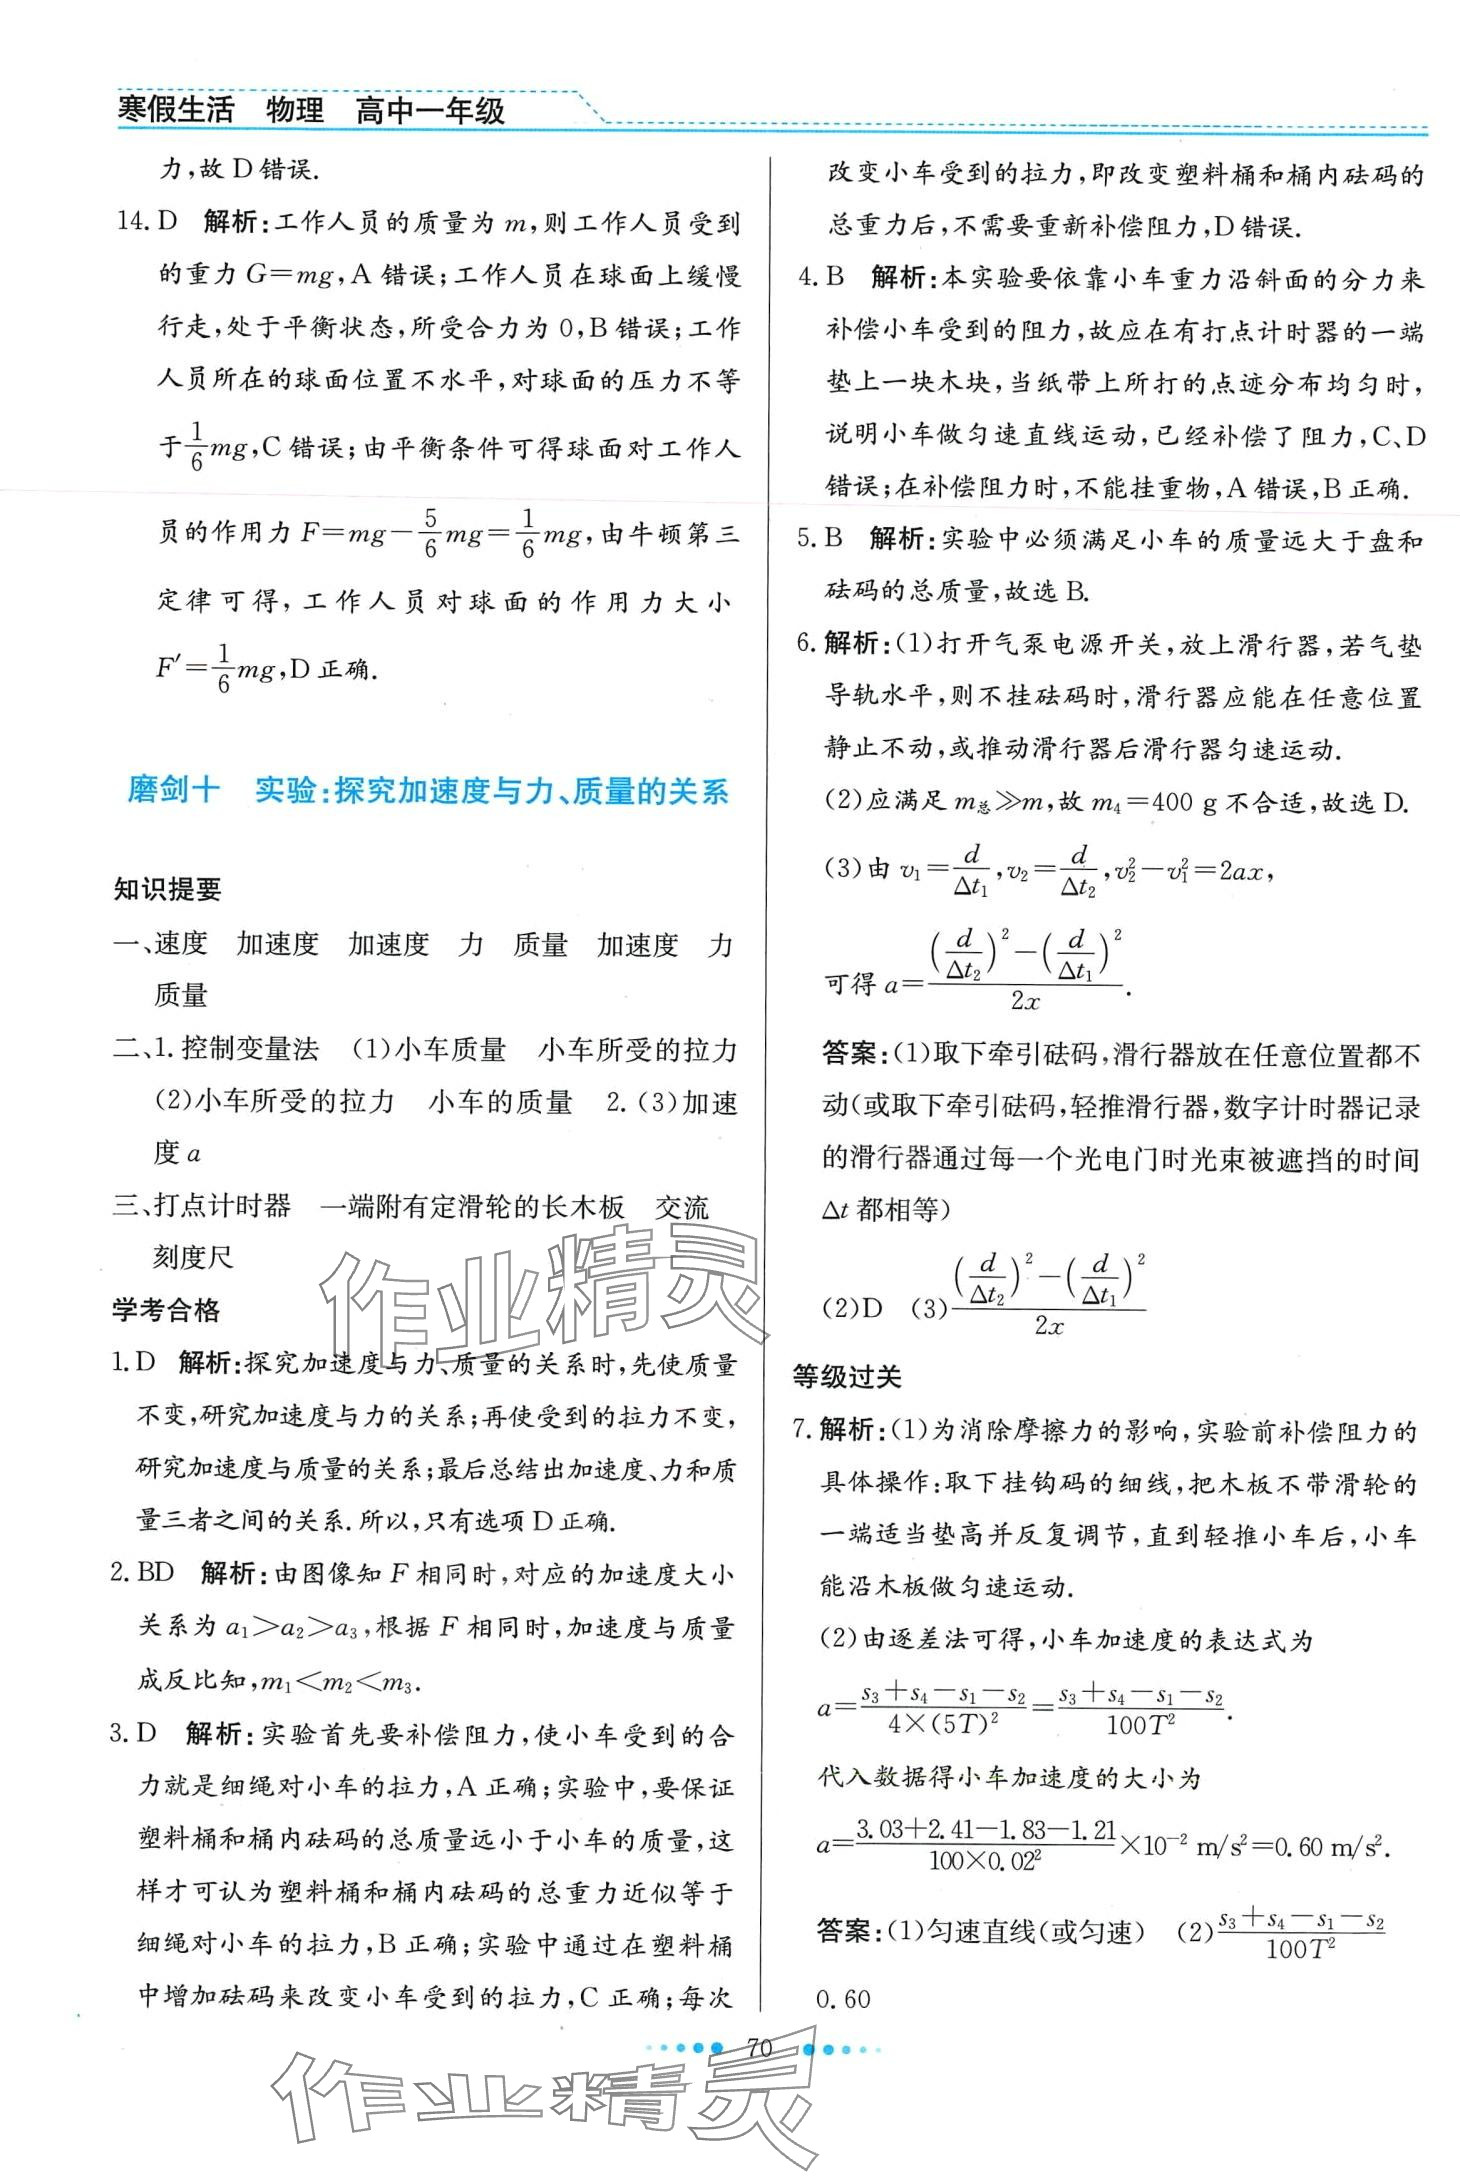 寒假生活　物理　高中一年级
力,故 D 错误.
14. D　解析:工作人员的质量为 m,则工作人员受到
的重力 G=mg,A 错误;工作人员在球面上缓慢
行走,处于平衡状态,所受合力为 0,B 错误;工作
人员所在的球面位置不水平,对球面的压力不等
于1/6mg,C 错误;由平衡条件可得球面对工作人
员的作用力 F=mg-5/6mg=1/6mg,由牛顿第三
定律可得,工作人员对球面的作用力大小
F′=1/6mg,D 正确.
磨剑十　实验:探究加速度与力、质量的关系
知识提要
一、速度　加速度　加速度　力　质量　加速度　力
质量
二、1. 控制变量法　(1)小车质量　小车所受的拉力
(2)小车所受的拉力　小车的质量　2. (3)加速
度 a
三、打点计时器　一端附有定滑轮的长木板　交流
刻度尺
学考合格
1. D　解析:探究加速度与力、质量的关系时,先使质量
不变,研究加速度与力的关系;再使受到的拉力不变,
研究加速度与质量的关系;最后总结出加速度、力和质
量三者之间的关系. 所以,只有选项 D 正确.
2. BD　解析:由图像知 F 相同时,对应的加速度大小
关系为 a₁>a₂>a₃,根据 F 相同时,加速度与质量
成反比知,m₁<m₂<m₃.
3. D　解析:实验首先要补偿阻力,使小车受到的合
力就是细绳对小车的拉力,A 正确;实验中,要保证
塑料桶和桶内砝码的总质量远小于小车的质量,这
样才可认为塑料桶和桶内砝码的总重力近似等于
细绳对小车的拉力,B 正确;实验中通过在塑料桶
中增加砝码来改变小车受到的拉力,C 正确;每次
改变小车受到的拉力,即改变塑料桶和桶内砝码的
总重力后,不需要重新补偿阻力,D 错误.
4. B　解析:本实验要依靠小车重力沿斜面的分力来
补偿小车受到的阻力,故应在有打点计时器的一端
垫上一块木块,当纸带上所打的点迹分布均匀时,
说明小车做匀速直线运动,已经补偿了阻力,C、D
错误;在补偿阻力时,不能挂重物,A 错误,B 正确.
5. B　解析:实验中必须满足小车的质量远大于盘和
砝码的总质量,故选 B.
6. 解析:(1)打开气泵电源开关,放上滑行器,若气垫
导轨水平,则不挂砝码时,滑行器应能在任意位置
静止不动,或推动滑行器后滑行器匀速运动.
(2)应满足 m总≫m,故 m₄=400 g 不合适,故选 D.
(3)由 v₁=d/Δt₁,v₂=d/Δt₂,v₂²-v₁²=2ax,
可得 a=((d/Δt₂)²-(d/Δt₁)²)/2x.
答案:(1)取下牵引砝码,滑行器放在任意位置都不
动(或取下牵引砝码,轻推滑行器,数字计时器记录
的滑行器通过每一个光电门时光束被遮挡的时间
Δt 都相等)
(2)D　(3)((d/Δt₂)²-(d/Δt₁)²)/2x
等级过关
7. 解析:(1)为消除摩擦力的影响,实验前补偿阻力的
具体操作:取下挂钩码的细线,把木板不带滑轮的
一端适当垫高并反复调节,直到轻推小车后,小车
能沿木板做匀速运动.
(2)由逐差法可得,小车加速度的表达式为
a=(s₃+s₄-s₁-s₂)/(4×(5T)²)=(s₃+s₄-s₁-s₂)/100T².
代入数据得小车加速度的大小为
a=(3.03+2.41-1.83-1.21)/(100×0.02²)×10⁻² m/s²=0.60 m/s².
答案:(1)匀速直线(或匀速)　(2)(s₃+s₄-s₁-s₂)/100T²
0.60
70
作业精灵
作业精灵